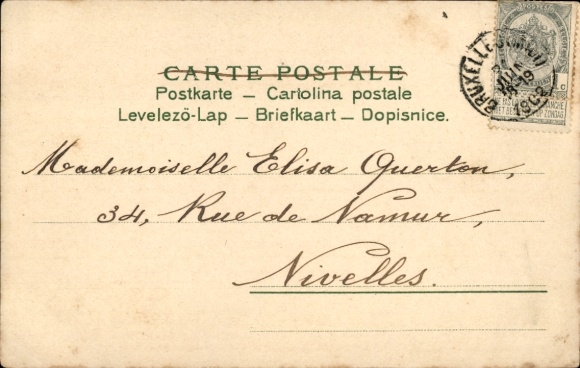 CARTE POSTALE
Postkarte — Cartolina postale
Levelező-Lap — Briefkaart — Dopisnice.
BRUXELLES
1902
Mademoiselle Elisa Querton,
34, Rue de Namur,
Nivelles.